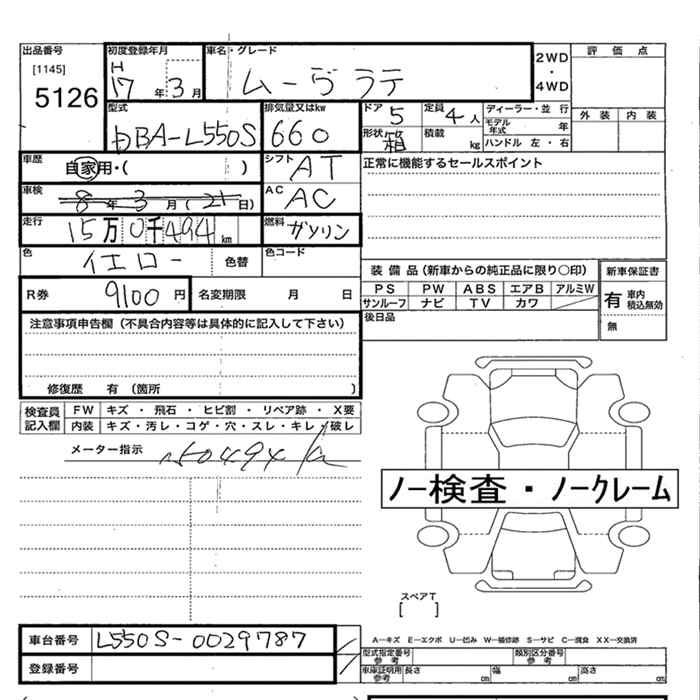 出品番号 初度登録年月 車名・グレード 2WD・4WD 評価点
[1145]
5126
H
17年3月
ムーヴラテ
外装 内装
型式 排気量又はkw ドア 定員 ディーラー・並行
DBA-L550S 660 5 4人
モデル年式 年
形状 箱 積載 kg ハンドル 左・右
車歴 自家用・( ) シフト AT 正常に機能するセールスポイント
車検 8年3月(21日) AC AC
走行 15万0千494km 燃料 ガソリン
色 イエロー 色替 色コード
装備品(新車からの純正品に限り○印) 新車保証書
R券 9100円 名変期限 月 日
PS PW ABS エアB アルミW 有 車内積込無効
サンルーフ ナビ TV カワ
後日品 無
注意事項申告欄(不具合内容等は具体的に記入して下さい)
修復歴 有(箇所 )
検査員記入欄 FW キズ・飛石・ヒビ割・リペア跡・X要
内装 キズ・汚レ・コゲ・穴・スレ・キレ・破レ
メーター指示 150494k
ノー検査・ノークレーム
スペアT
[ ]
車台番号 L550S-0029787
A―キズ E―エクボ U―凹み W―補修跡 S―サビ C―腐食 XX―交換済
型式指定番号 参考 類別区分番号 参考
登録番号 車庫証明用 参考 長さ cm 幅 cm 高さ cm